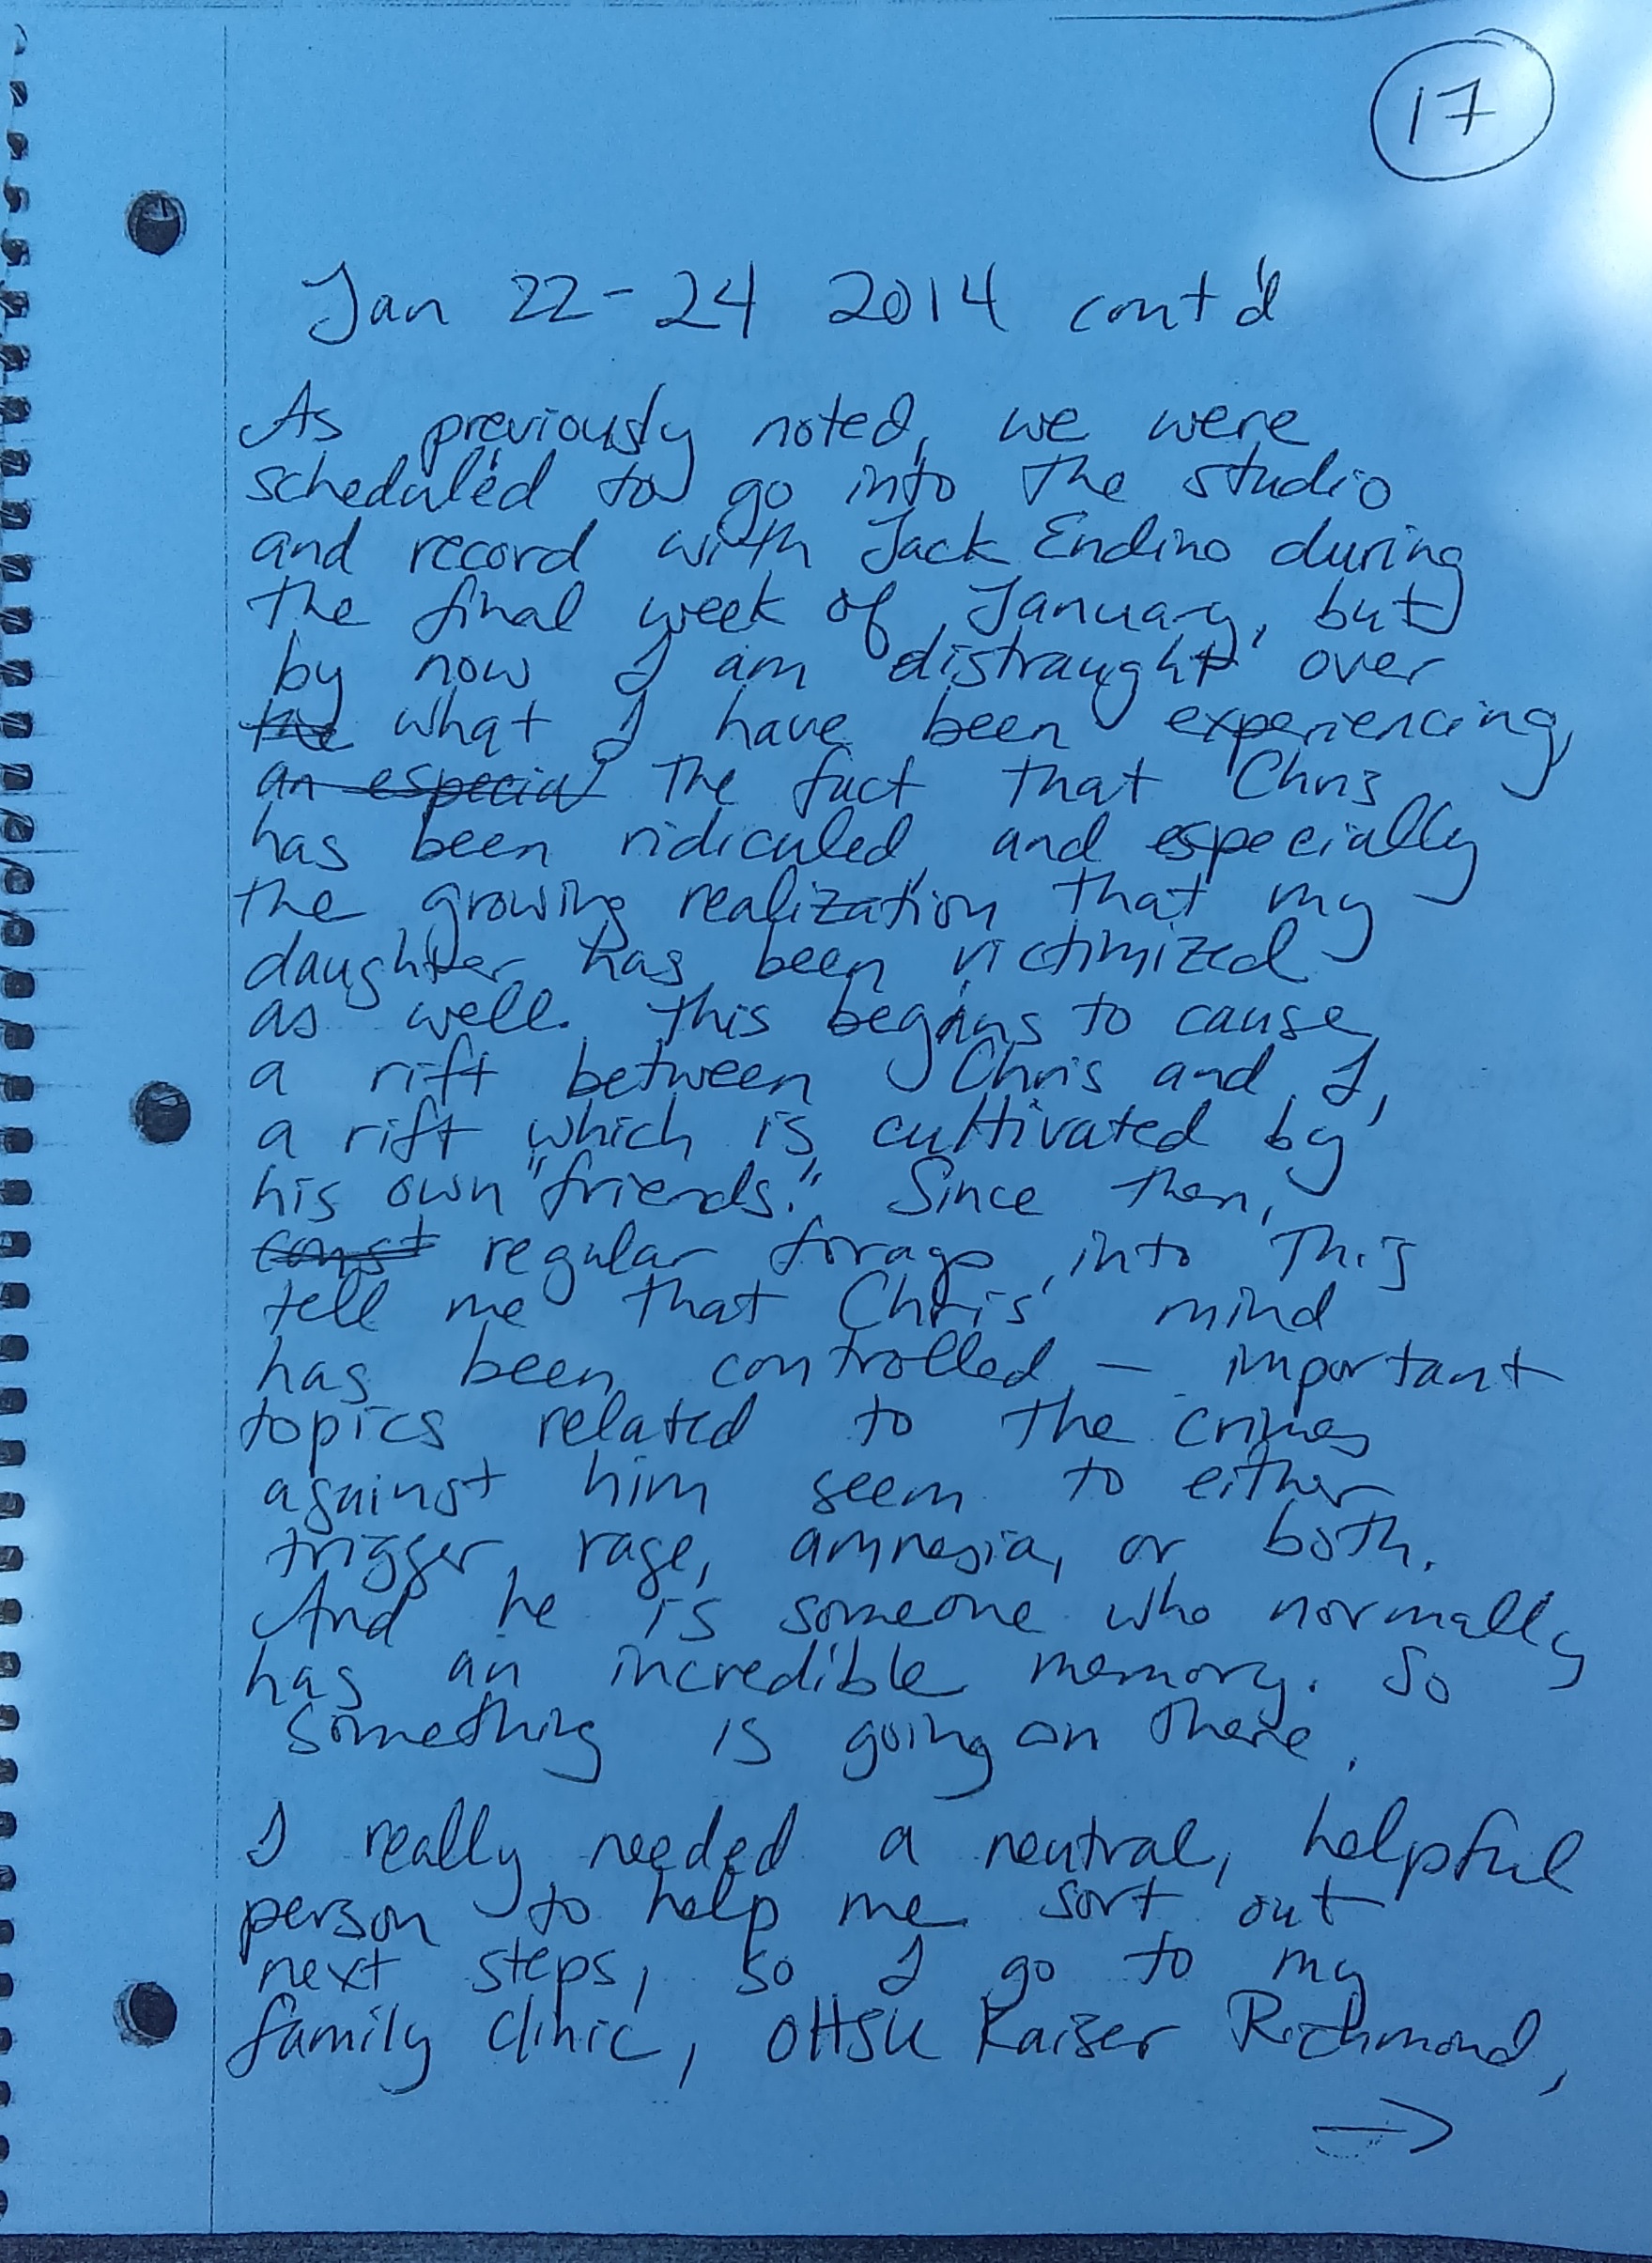 17
Jan 22-24 2014 cont'd
As previously noted, we were
scheduled to go into the studio
and record with Jack Endino during
the final week of January, but
by now I am distraught over
the what I have been experiencing,
an especial the fact that Chris
has been ridiculed, and especially
the growing realization that my
daughter has been victimized
as well. This begins to cause
a rift between Chris and I,
a rift which is cultivated by
his own "friends." Since then,
const regular forays into this
tell me that Chris' mind
has been controlled — important
topics related to the crimes
against him seem to either
trigger rage, amnesia, or both.
And he is someone who normally
has an incredible memory. So
something is going on there.
I really needed a neutral, helpful
person to help me sort out
next steps, so I go to my
family clinic, OHSU Kaiser Richmond,
→